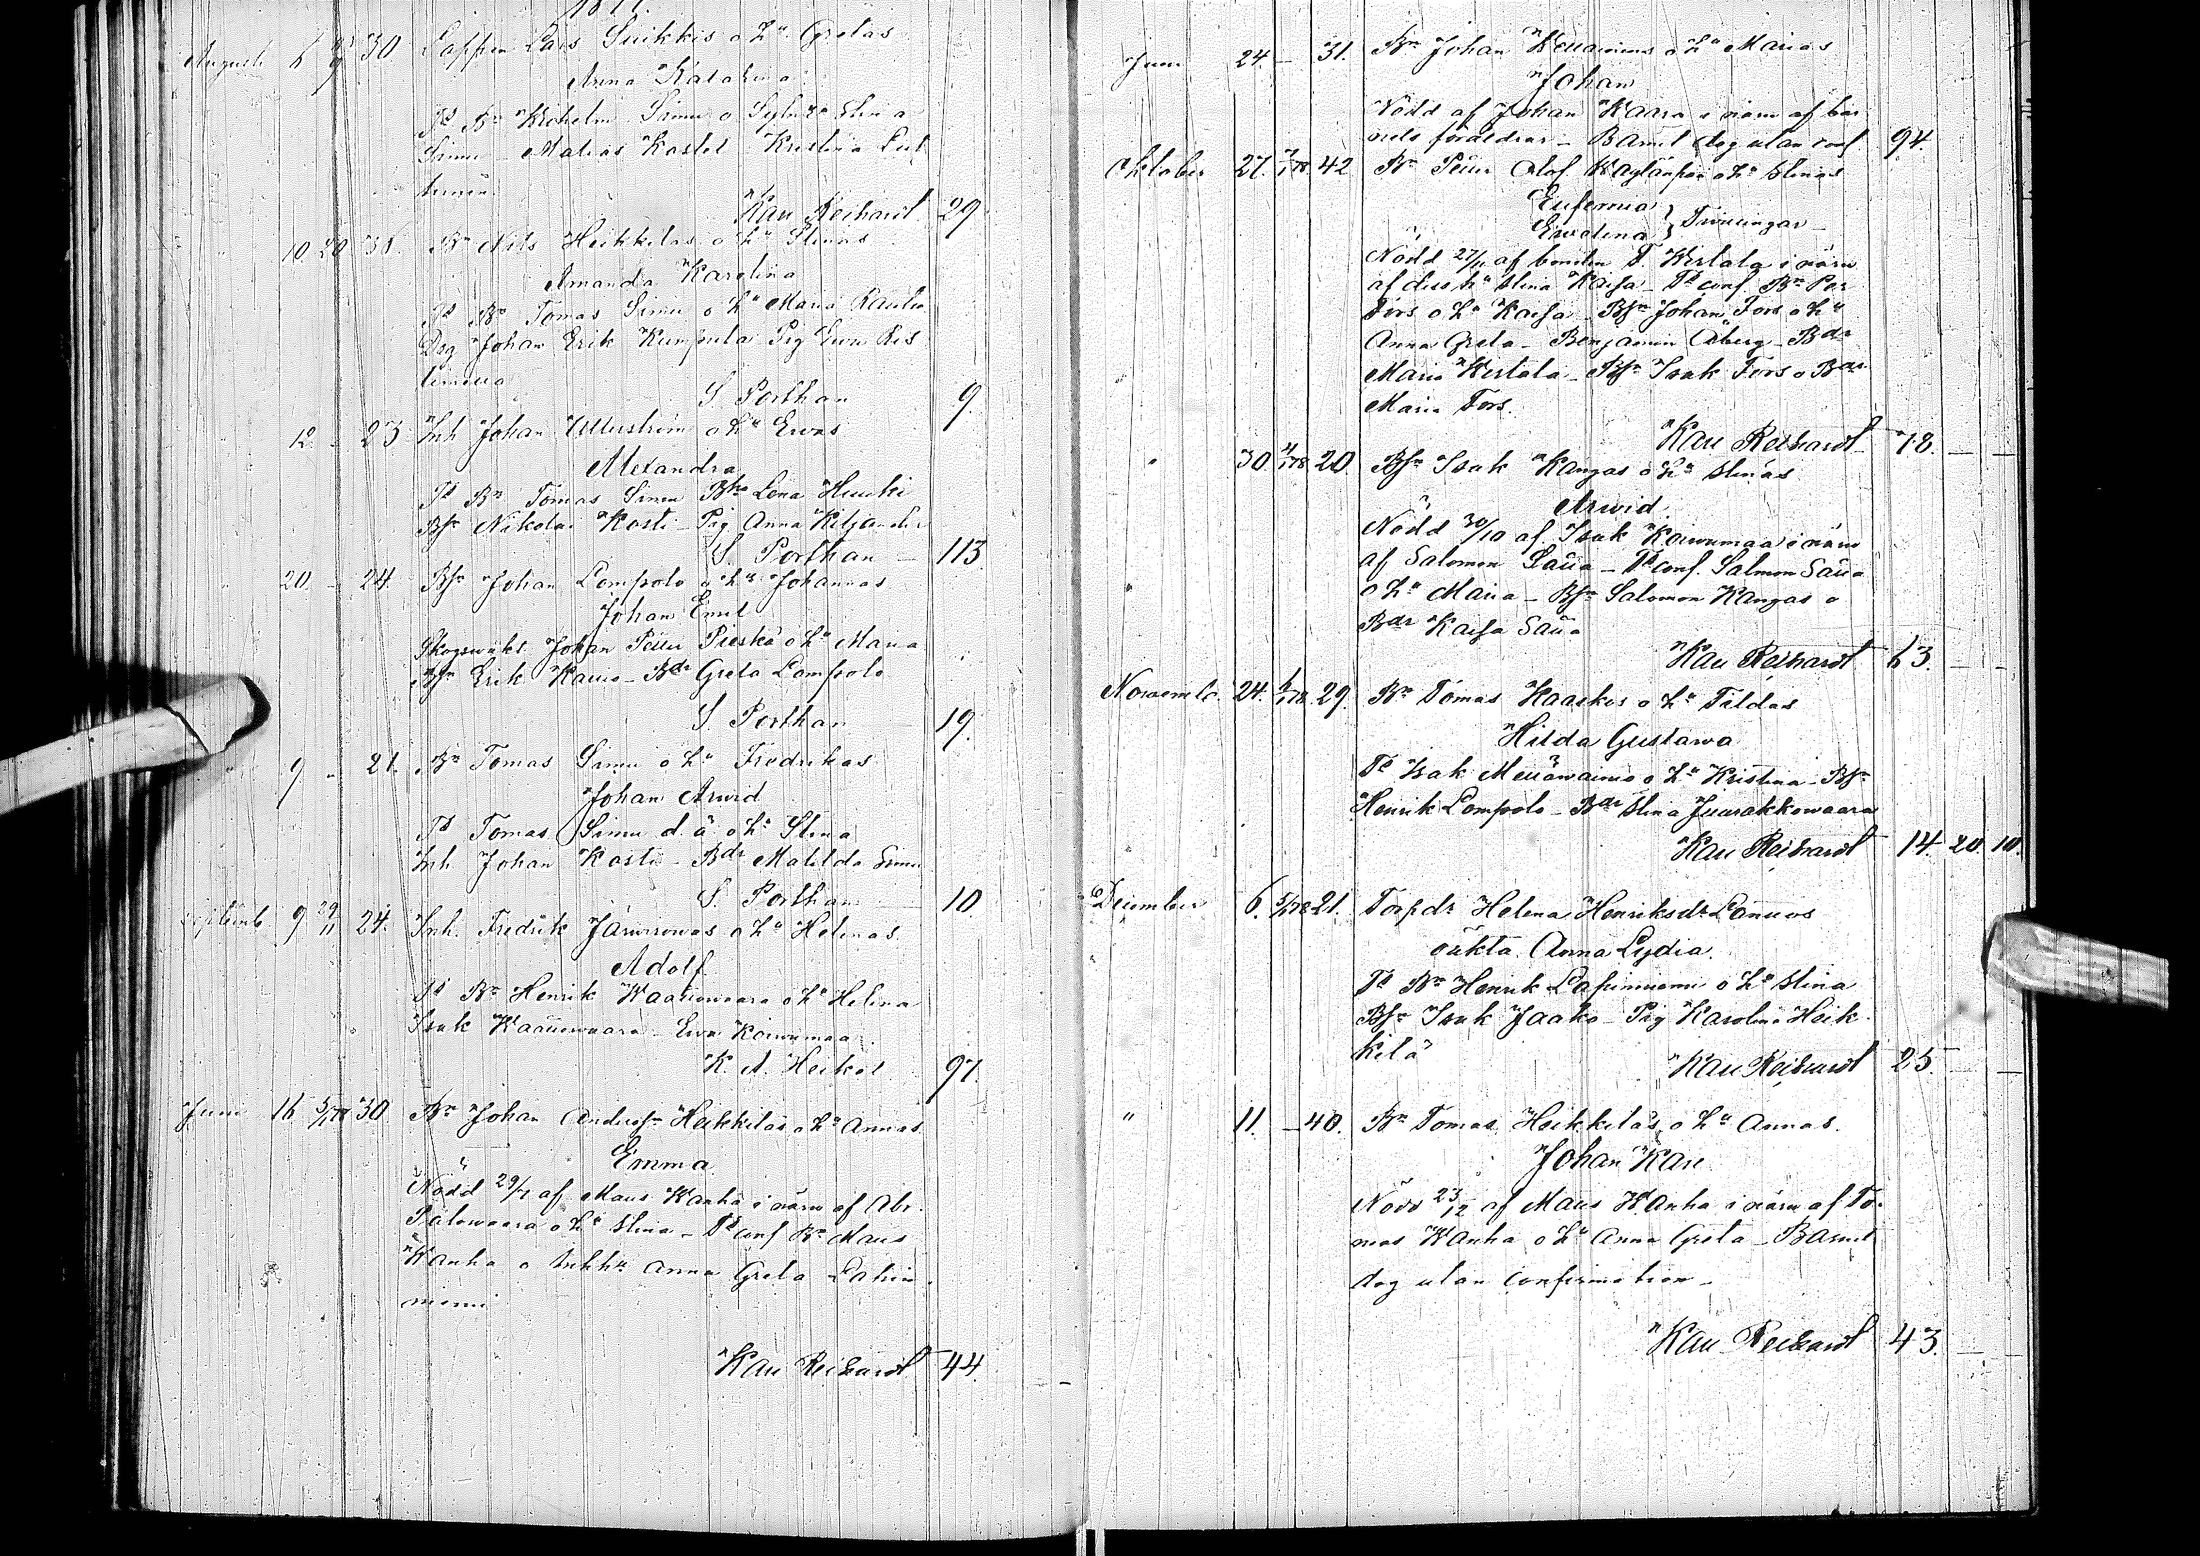 1877.
Augusti 6 30. Lappen Lars Suikkis o hu Gretas
Anna Katarina
Td Bn Wilhelm Simu o Stina
Simu Matias Kostet Kristina
Karl Reihardt 29
10 Bn Nils Heikkilas o hu Stinas
Amanda Karolina
Td Bn Tomas Simu o hu Maria Rautio
Drg Johan Erik Kumpula Pig Ewa Ris
timella
S. Porthan 9.
12 - 23 Inh Johan Ullerström o hu Ewas
Alexandra
Td Bn Tomas Simu Lena Huuki
Bsn Nikolai Kosti - Pig Anna Kiljander
S. Porthan 113.
20. - 24. Bsn Johan Lompolo o hu Johannas
Johan Emil
Skogswakt. Johan Petter Pieskä o hu Maria
Bsn Erik - Bdr Greta Lompolo
S. Porthan 19.
9 " 21. Bn Tomas Simu o hu Fredrikas
Johan Arwid
Td Tomas Simu d. ä. o hu Stina
Inh Johan Kosti - Bdr Matilda Simu
S. Porthan 10
Septemb. 9 29/11 24. Inh. Fredrik o hu Helenas
Adolf
Td Bn Henrik Waaraniwaara o hu Helena
Isak - Ewa Koiwumaa
K. A. Heikel 97.
Juni 16 5/1 78 30. Bn Johan Andersn Heikkiläs o hu Annas
Emma
Nödd 29/7 af Mans Wanha i närw af Abr.
Palowaara o hu Stina - Td conf Bn Mans
Wanha o Inhhu Anna Greta Lahin
niemi
Karl Reihardt 44.
Juni 24. - 31. Bn Johan o hu Marias
Johan
Nödd af Johan Waara i närw af bar
nets föräldrar - Barnet dog utan conf 94.
Oktober 27. 7/1 78. 42 Bn Petter Olof o hu Stinas
Eufemia
Ewelina } Twillingar -
Nödd 27/11 af bonden F. Kertala i närw
af dess hu Stina Kaisa - Td conf Bn Per
Fors o hu Kaisa - Bsn Johan Fors o hu
Anna Greta - Benjamin Åberg - Bdr
Maria Kertala - Bsn Isak Fors o Bdr
Maria Fors.
Karl Reihardt 78.
" 30. 4/1 78 20. Bsn Isak Kangas o hu Stinas
Arwid
Nödd 30/10 af Isak Koiwumaa i närw
af Salomon - Td conf. Salmon
o hu Maria - Bsn Salomon Kangas o
Bdr Kaisa
Karl Reihardt 63.
Novemb. 24. 6/1 78. 29. Bn Tomas Kaarkos o hu Tildas
Hilda Gustawa
Td Isak o hu Kristina - Bsn
Henrik Lompolo - Bdr Stina Juurakkowaara
Karl Reihardt 14. 20. 10.
December 6. 5/1 78 21. Torpdr Helena Henriksdr
oäkta. Anna Lydia.
Td Bn Henrik Lahinniemi o hu Stina
Bsn Isak Jaako - Pig Karolina Heik
kilä
Karl Reihardt 25.
" 11. - 40. Bn Tomas Heikkiläs o hu Annas.
Johan Karl
Nödd 23/12 af Mans Wanha i närw af To-
mas Wanha o hu Anna Greta - Barnet
dog utan confirmation -
Karl Reihardt 43.